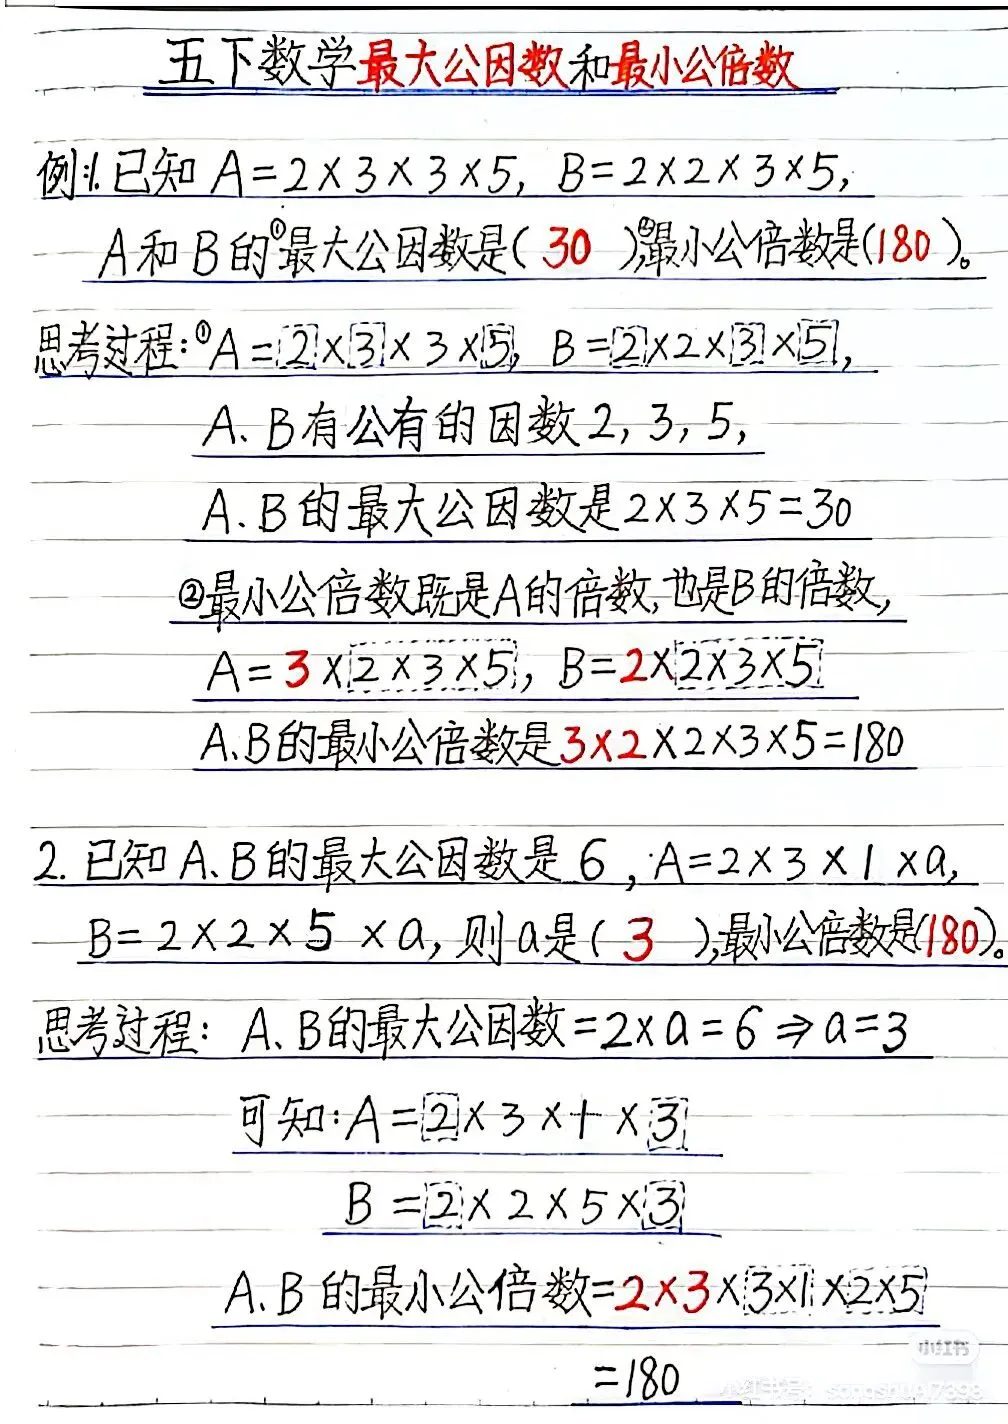 五下数学最大公因数和最小公倍数
例:1.已知 A=2×3×3×5, B=2×2×3×5,
A和B的①最大公因数是( 30 ),②最小公倍数是(180)。
思考过程:①A=2×3×3×5, B=2×2×3×5,
A、B有公有的因数2,3,5,
A、B的最大公因数是2×3×5=30
②最小公倍数既是A的倍数,也是B的倍数,
A=3×2×3×5, B=2×2×3×5
A、B的最小公倍数是3×2×2×3×5=180
2.已知A、B的最大公因数是6,A=2×3×1×a,
B=2×2×5×a,则a是( 3 ),最小公倍数是(180)。
思考过程: A、B的最大公因数=2×a=6⇒a=3
可知:A=2×3×1×3
B=2×2×5×3
A、B的最小公倍数=2×3×3×1×2×5
=180
小红书
小红书号: